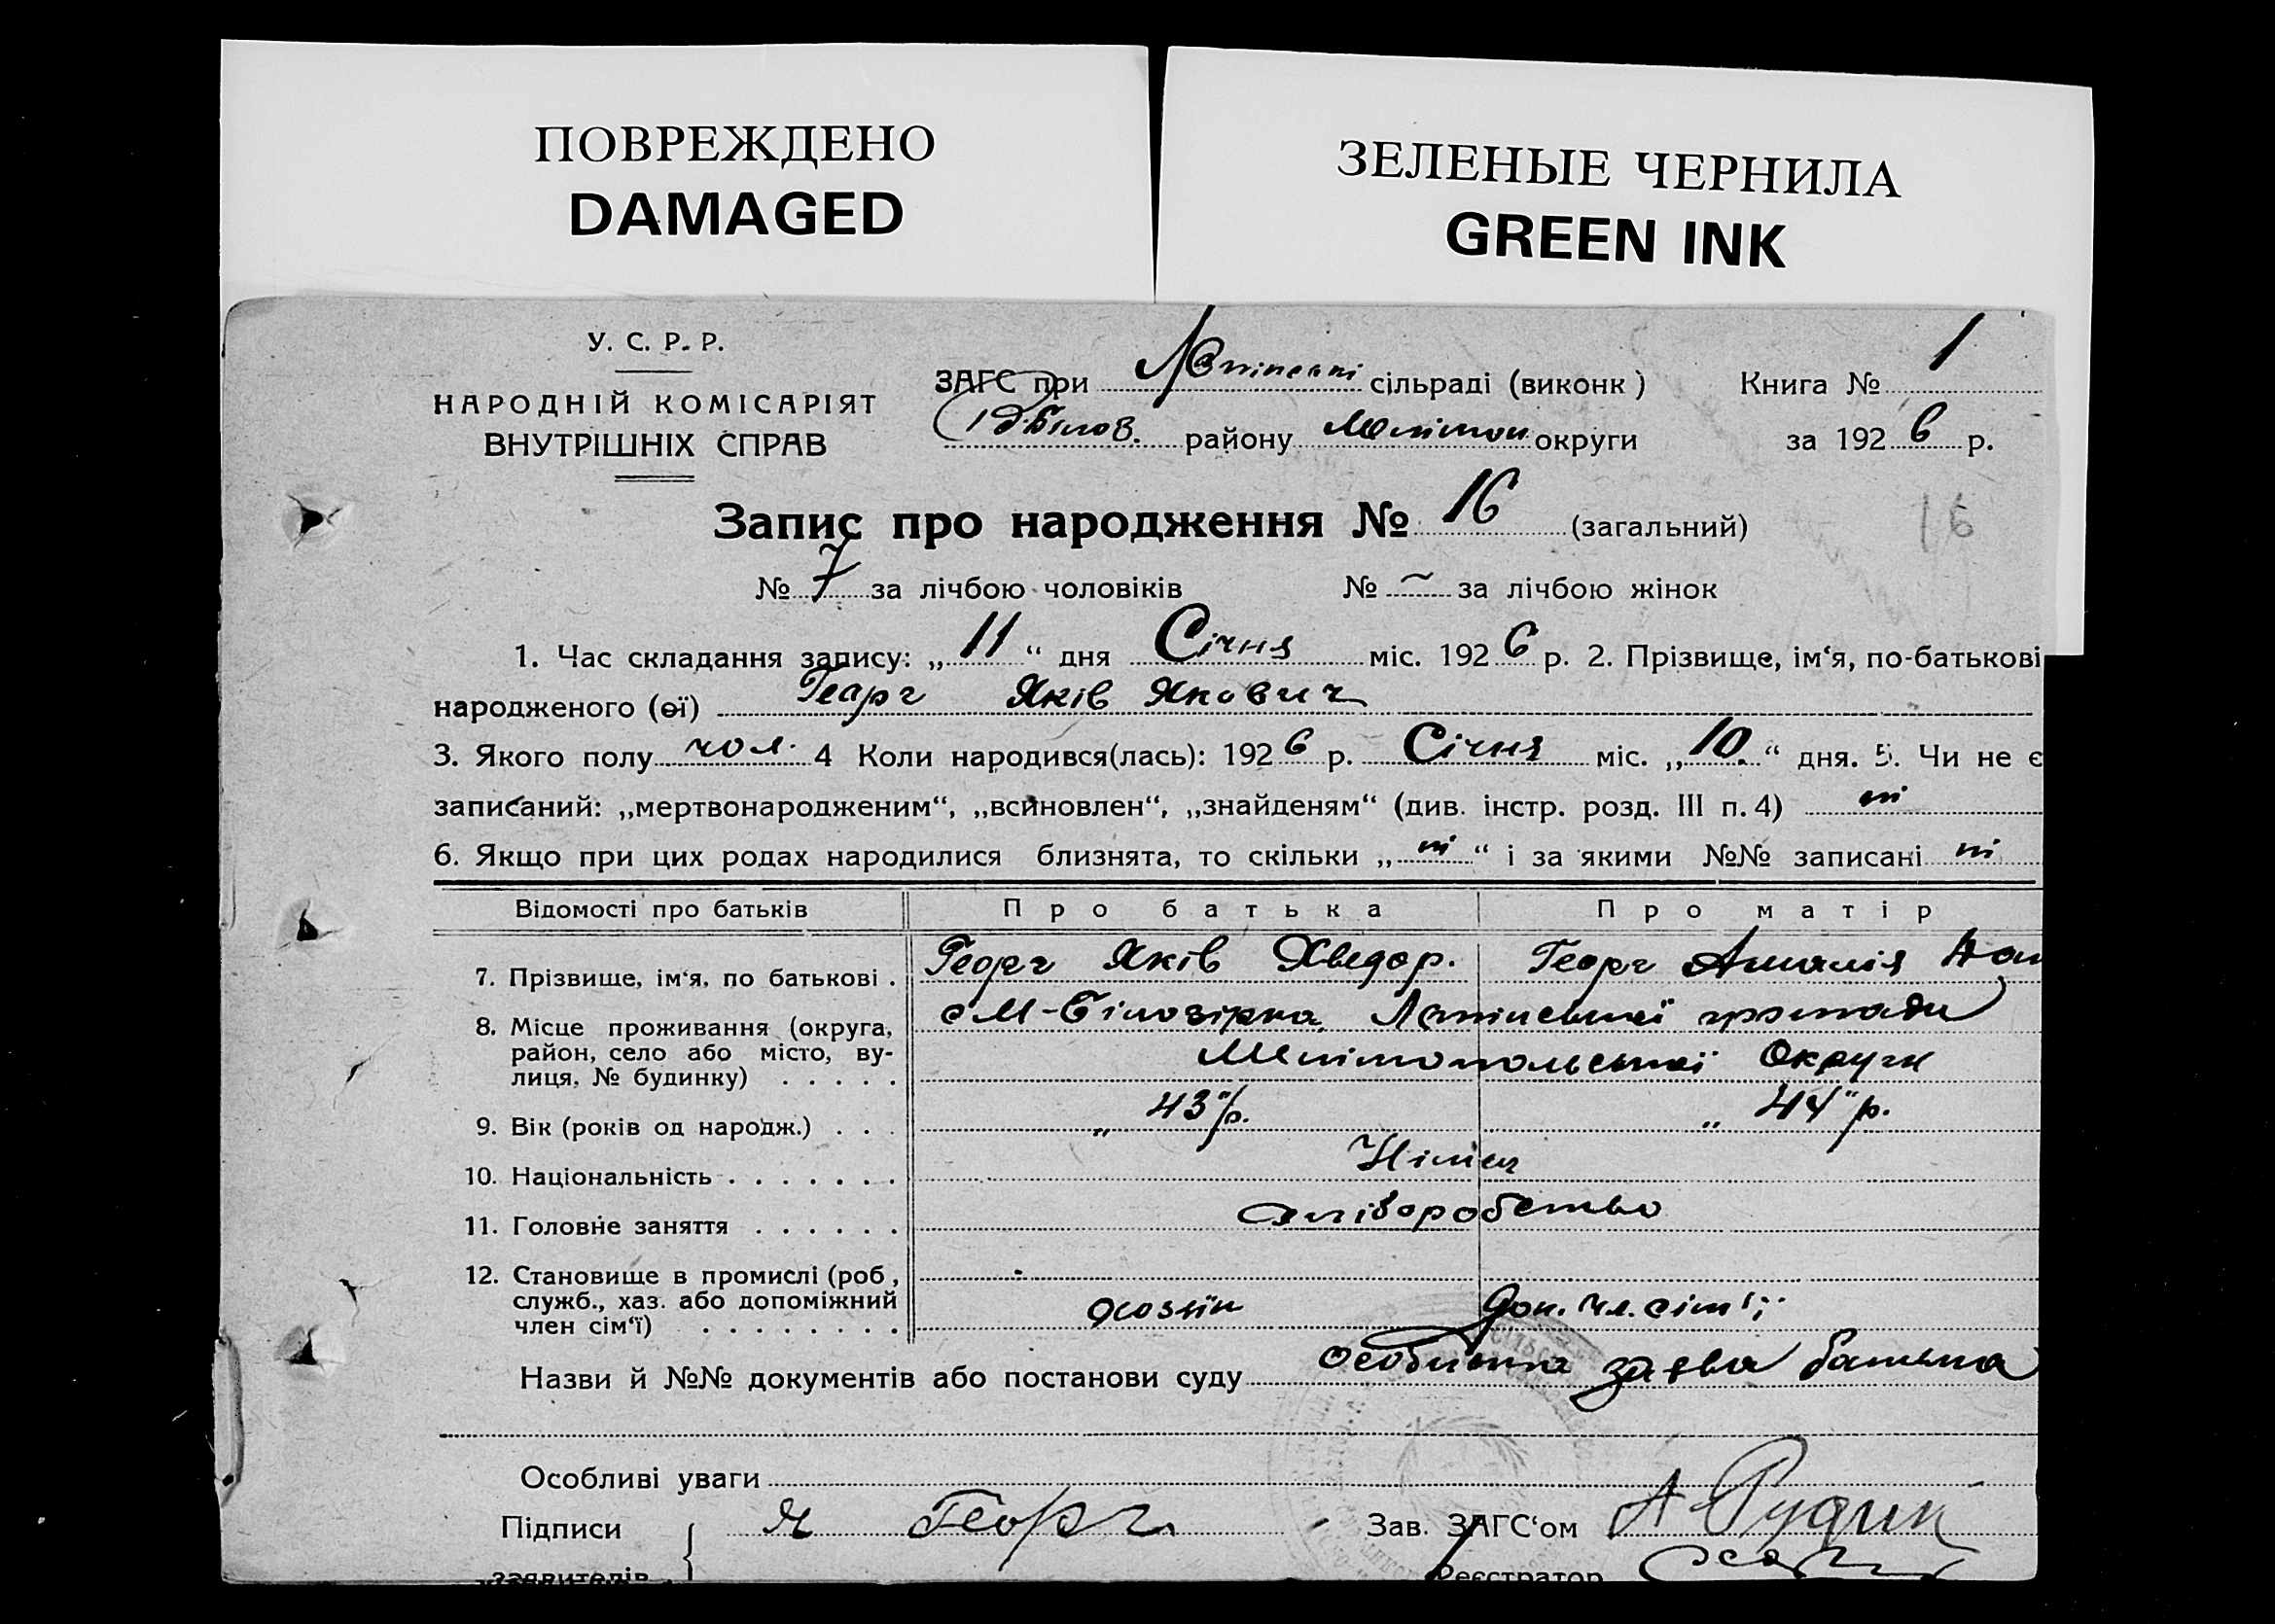 ПОВРЕЖДЕНО
DAMAGED
ЗЕЛЕНЫЕ ЧЕРНИЛА
GREEN INK
У. С. Р. Р.
НАРОДНІЙ КОМІСАРІЯТ
ВНУТРІШНІХ СПРАВ
ЗАГС при сільраді (виконк)
району Мелітоп округи
Книга № 1
за 1926 р.
Запис про народження № 16 (загальний)
16
№ 7 за лічбою чоловіків № – за лічбою жінок
1. Час складання запису: „11“ дня Січня міс. 1926 р. 2. Прізвище, ім‘я, по-батькові
народженого (ої) Георг Яків Якович
3. Якого полу чол. 4 Коли народився(лась): 1926 р. Січня міс. „10.“ дня. 5. Чи не є
записаний: „мертвонародженим“, „всиновлен“, „знайденям“ (див. інстр. розд. III п. 4) ні
6. Якщо при цих родах народилися близнята, то скільки „ні“ і за якими №№ записані ні
Відомості про батьків Про батька Про матір
7. Прізвище, ім‘я, по батькові . Георг Яків Хведор. Георг Амалія
8. Місце проживання (округа, район, село або місто, вулиця, № будинку) . . . . . с М-Білозірка, громади
Мелітопольської Округи
9. Вік (років од народж.) . . . „ 43“ р. „ 44“ р.
10. Національність . . . . . . . Німці
11. Головне заняття . . . . . . хліборобство
12. Становище в промислі (роб, служб., хаз. або допоміжний член сім‘ї) . . . . . . . . хозяїн Доп. чл. сім'ї
Назви й №№ документів або постанови суду Особиста заява батька
Особливі уваги
Підписи Я Георг Зав. ЗАГС‘ом А Рудик
заявителів Реєстратор